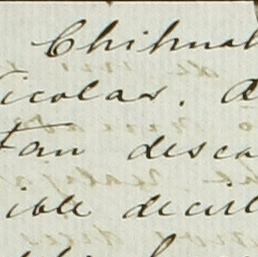 Chihuah
icolas. A
tan desca
ible decirl